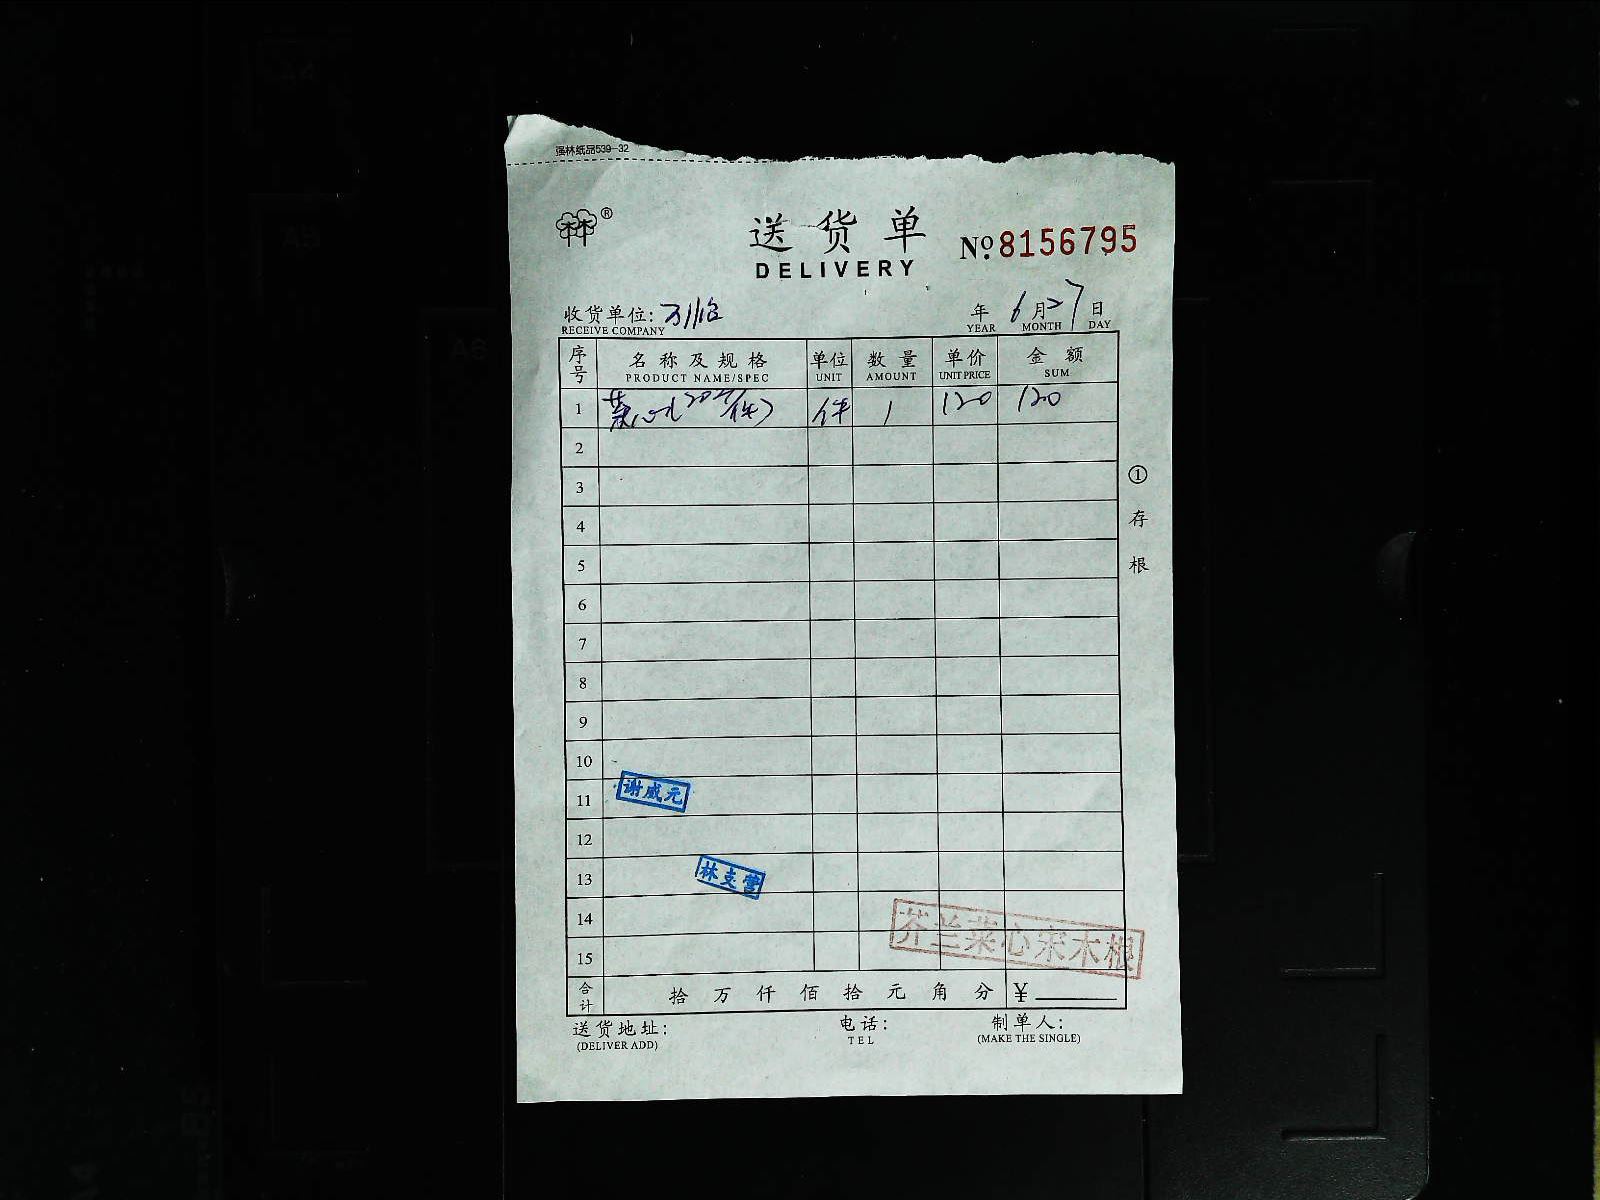 强林纸品539-32
林®
送货单
DELIVERY
№8156795
收货单位:
RECEIVE COMPANY
年 6月27日
YEAR MONTH DAY
序号 名称及规格 单位 数量 单价 金额
PRODUCT NAME/SPEC UNIT AMOUNT UNIT PRICE SUM
1 菜心 件 1 120 120
2
3
4
5
6
7
8
9
10
11 谢威元
12
13 林支营
14
芥兰菜心宋木根
15
合计 拾万仟佰拾元角分 ¥
送货地址: 电话: 制单人:
(DELIVER ADD) TEL (MAKE THE SINGLE)
①存根